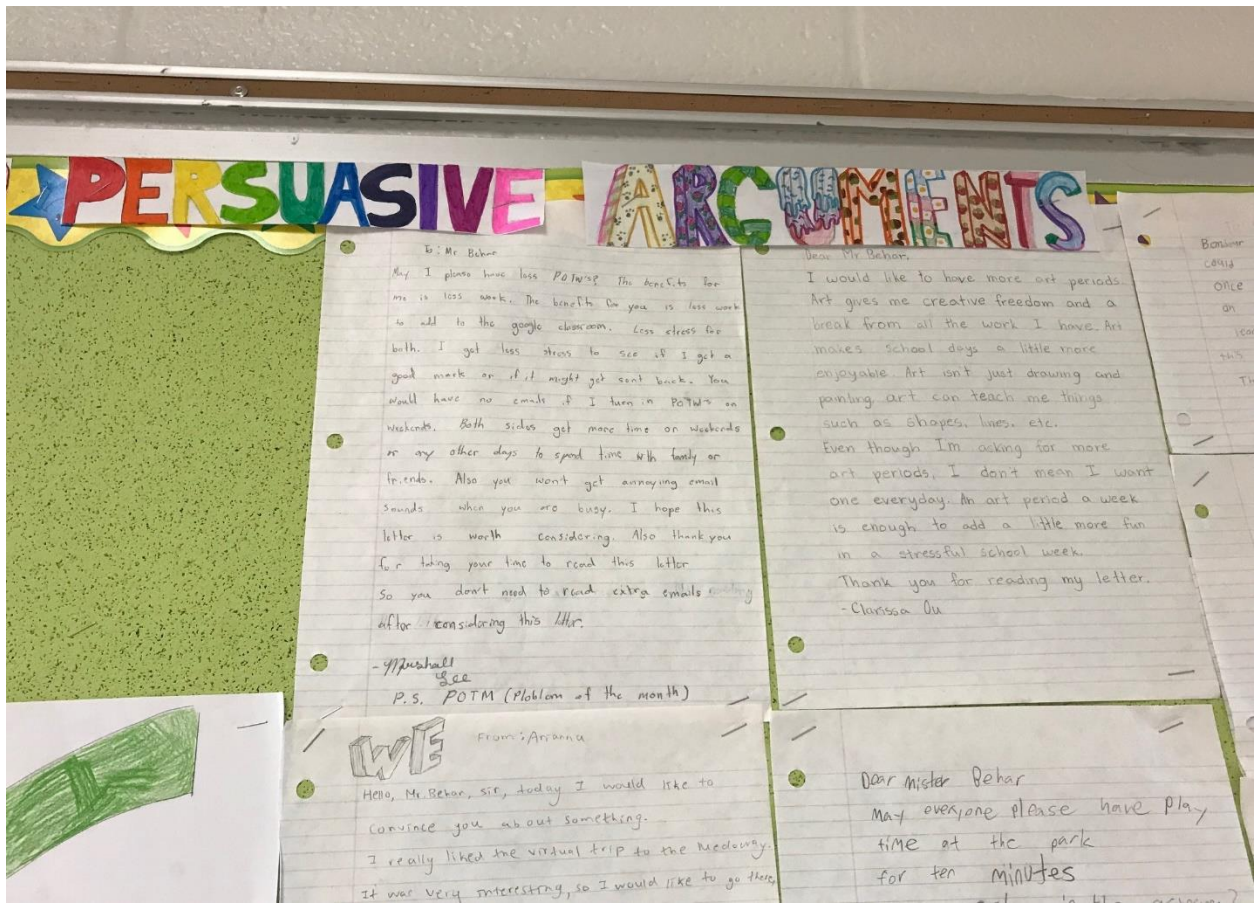 PERSUASIVE ARGUMENTS
To: Mr Behar
May I please have less POTW's? The benefits for
me is less work. The benefits for you is less work
to add to the google classroom. Less stress for
both. I get less stress to see if I get a
good mark or if it might get sent back. You
would have no emails if I turn in POTW's on
weekends. Both sides get more time on weekends
or any other days to spend time with family or
friends. Also you won't get annoying email
sounds when you are busy. I hope this
letter is worth considering. Also thank you
for taking your time to read this letter
So you don't need to read extra emails
after considering this letter.
-Marshall
Lee
P.S. POTM (Ploblem of the month)
Dear Mr Behar,
I would like to have more art periods.
Art gives me creative freedom and a
break from all the work I have. Art
makes school days a little more
enjoyable. Art isn't just drawing and
painting art can teach me things
such as shapes, lines, etc.
Even though Im asking for more
art periods, I don't mean I want
one everyday. An art period a week
is enough to add a little more fun
in a stressful school week.
Thank you for reading my letter.
-Clarissa Ou
Bonjour
could
once
an
this
WE
From: Arianna
Hello, Mr. Behar, sir, today I would like to
convince you about something.
I really liked the virtual trip to the Medoway.
It was very interesting, so I would like to go there,
Dear mister Behar
May everyone please have play
time at the park
for ten minutes